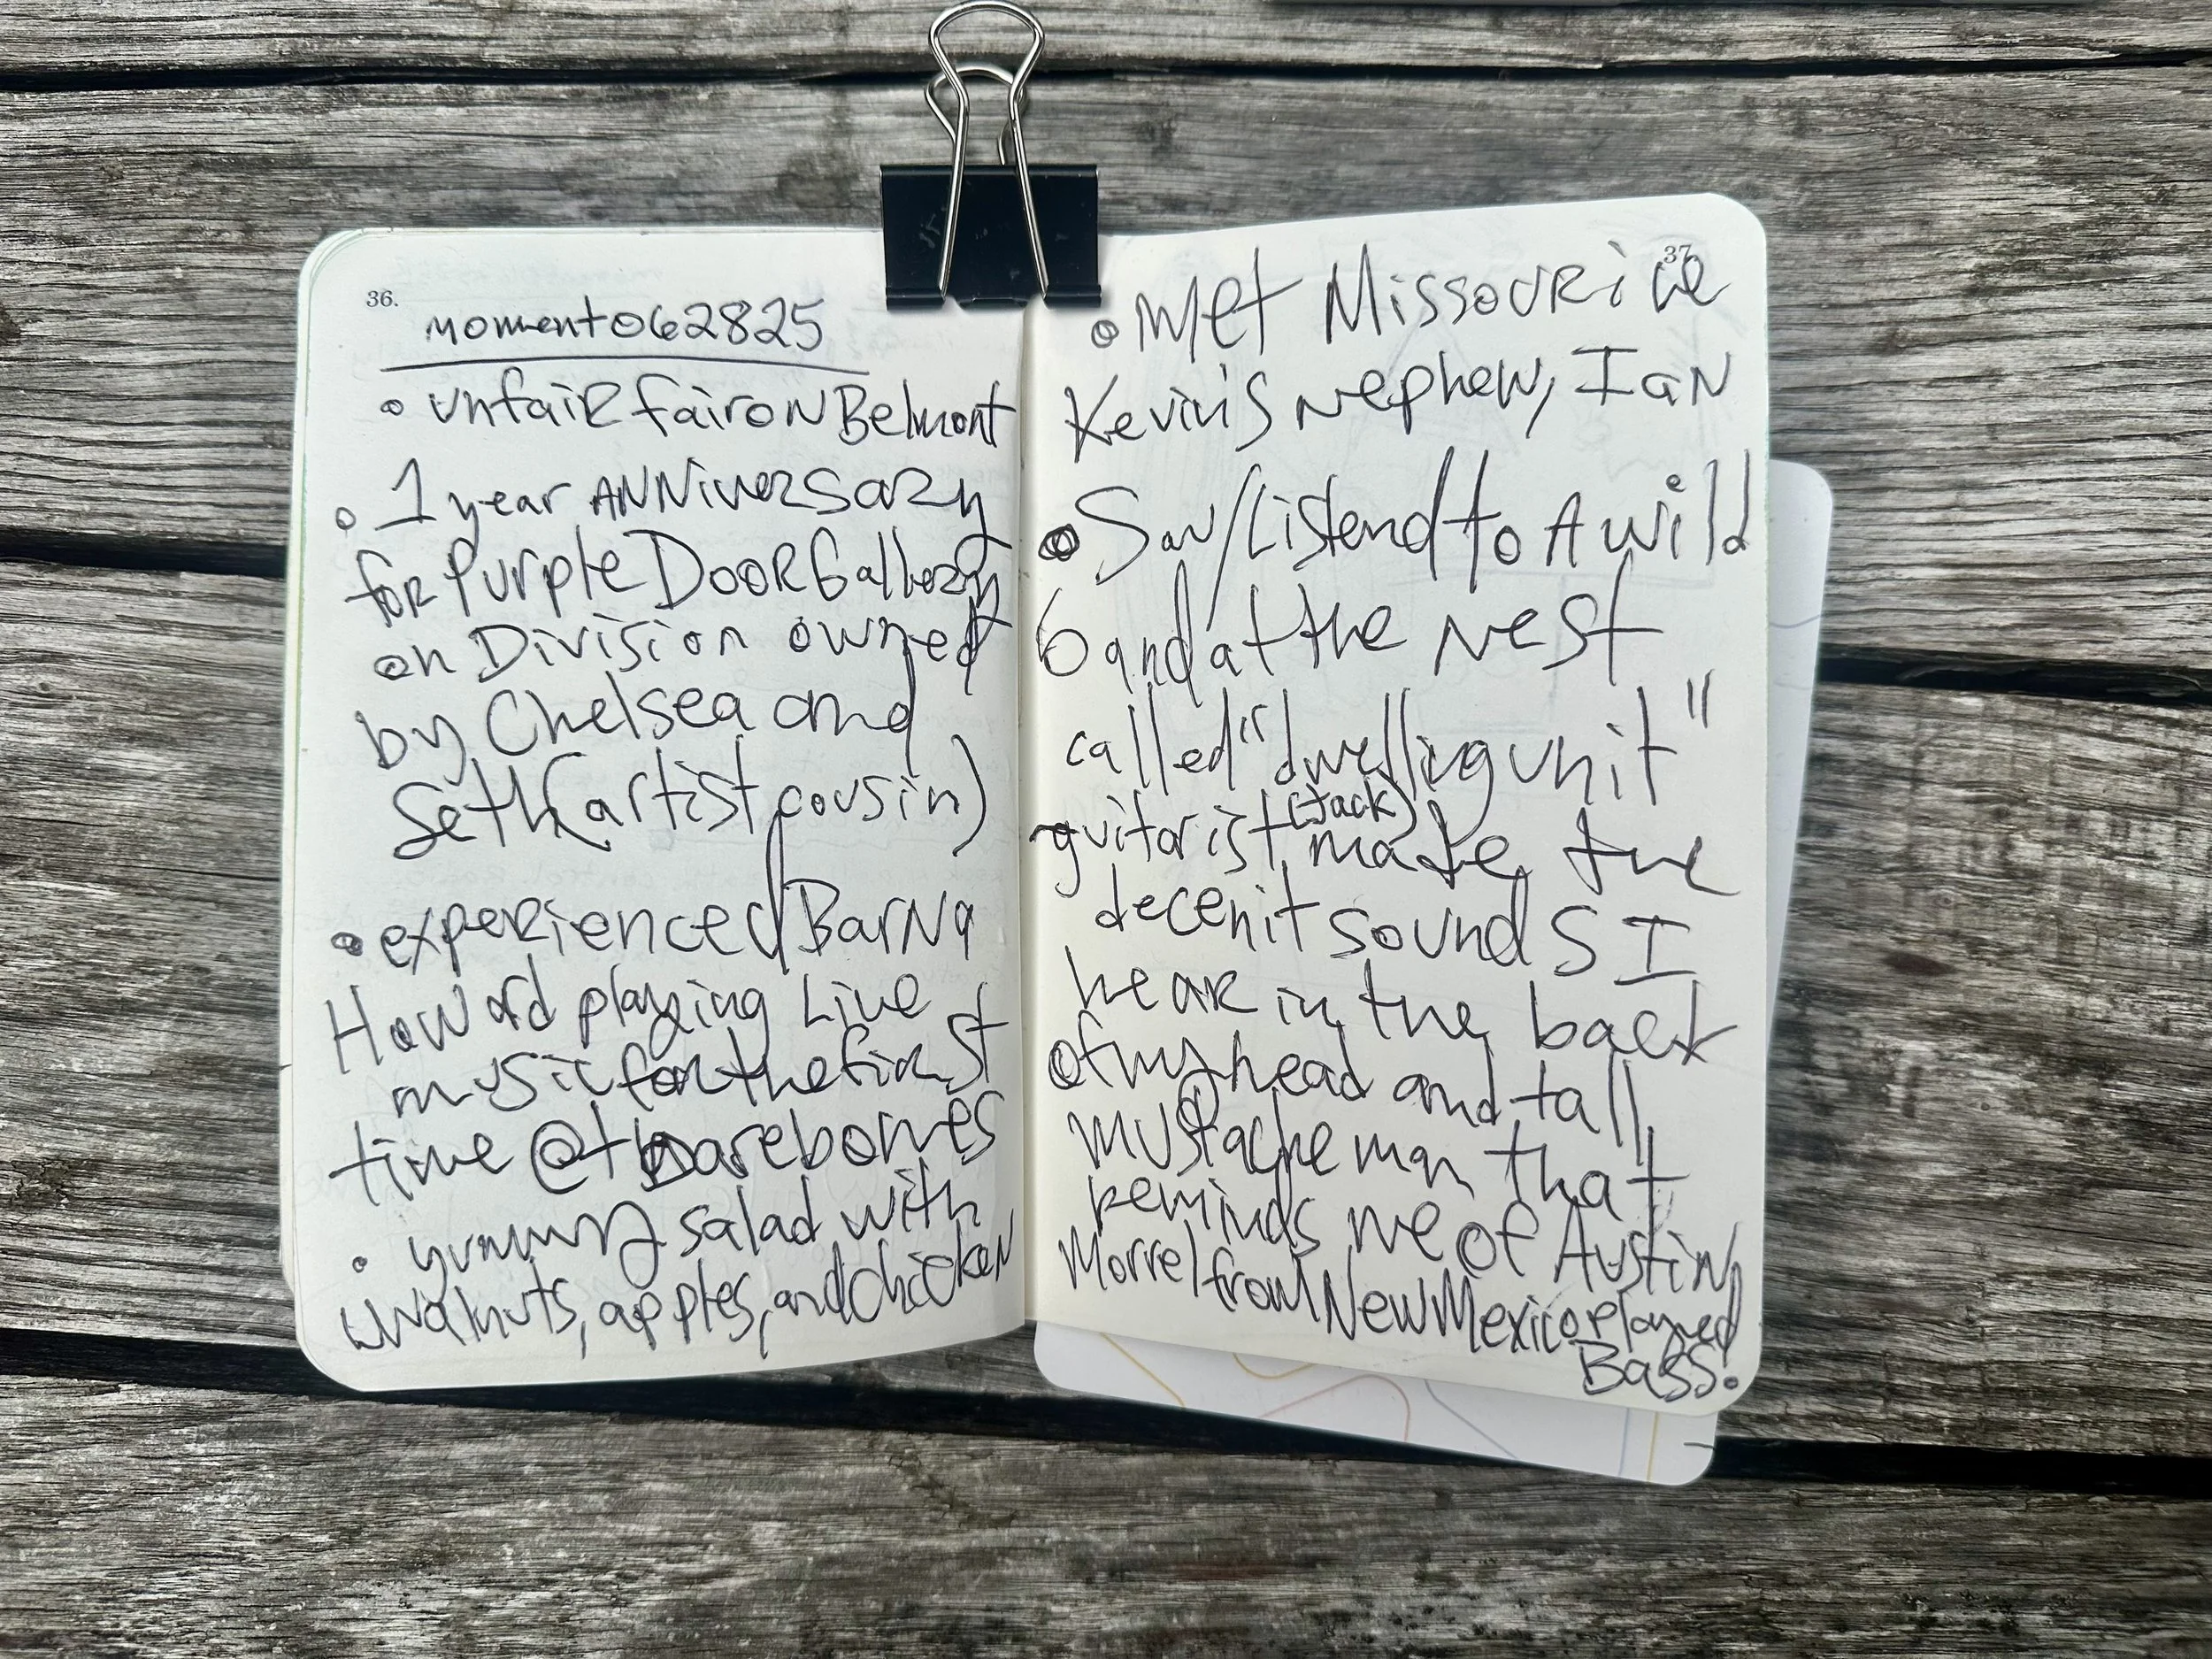 36.
momento62825
• unfair fair on Belmont
• 1 year ANNiversary
for Purple Door Gallery
on Division owned
by Chelsea and
Seth (artist cousin)
• experienced Barna
Howard playing Live
music for the first
time @ the barebones
• yummy salad with
walnuts, apples, and chicken
37
• met Missouri
Kevin's nephew, Ian
• Saw/Listend to A wild
band at the Nest
called "dwelling unit"
- guitarist (Jack) made the
decenit sounds I
hear in the back
of my head and tall
mustache man that
reminds me of Austin
Morrel from New Mexico played
Bass.